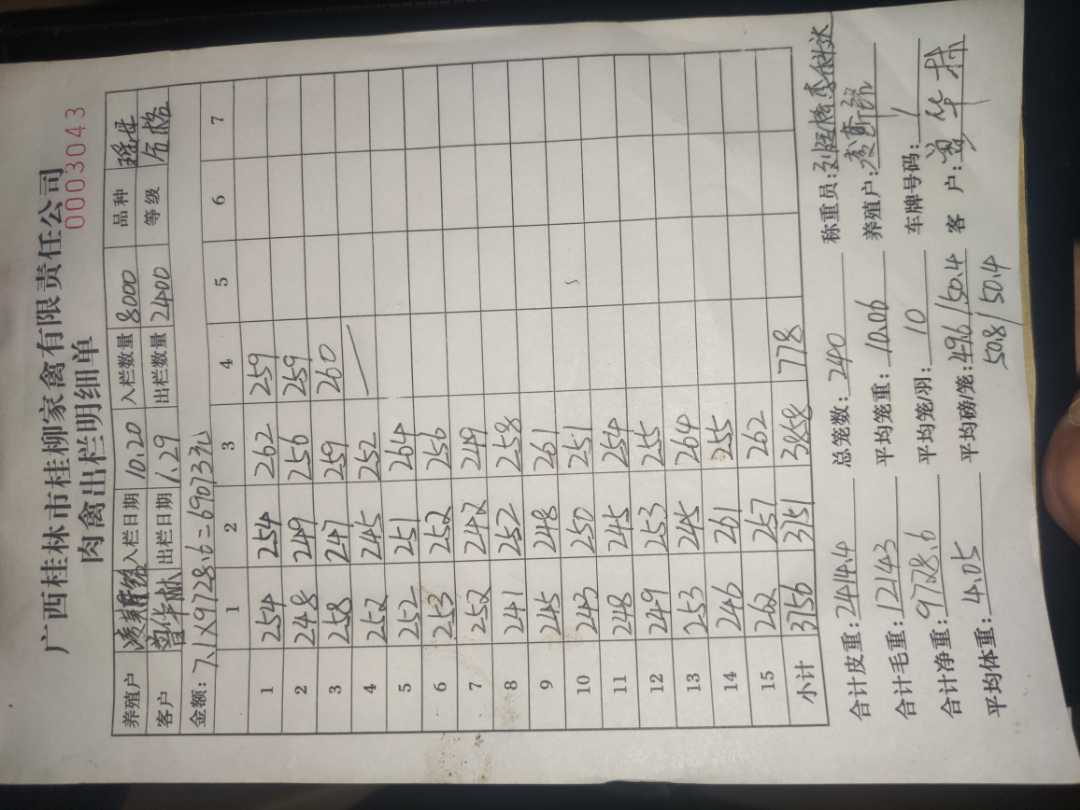 广西桂林市桂柳家禽有限责任公司
肉禽出栏明细单 0003043
养殖户 入栏日期 10.20 入栏数量 8000 品种
客户 曾华献 出栏日期 1.29 出栏数量 2400 等级 合格
金额: 7.1×9728.6=69073元
1 2 3 4 5 6 7
1 254 254 262 259
2 248 249 256 259
3 258 247 259 260
4 252 245 252
5 252 251 264
6 253 252 256
7 252 242 249
8 241 252 258
9 245 248 261
10 243 250 251
11 248 245 254
12 249 253 255
13 253 245 264
14 246 261 255
15 262 257 262
小计 3756 3751 3858 778
合计皮重: 2414.4 总笼数: 240 称重员:
合计毛重: 12143 平均笼重: 10.06 养殖户:
合计净重: 9728.6 平均笼/羽: 10 车牌号码: /
平均体重: 4.05 平均磅/笼: 49.6/50.4 客 户:
50.8/50.4